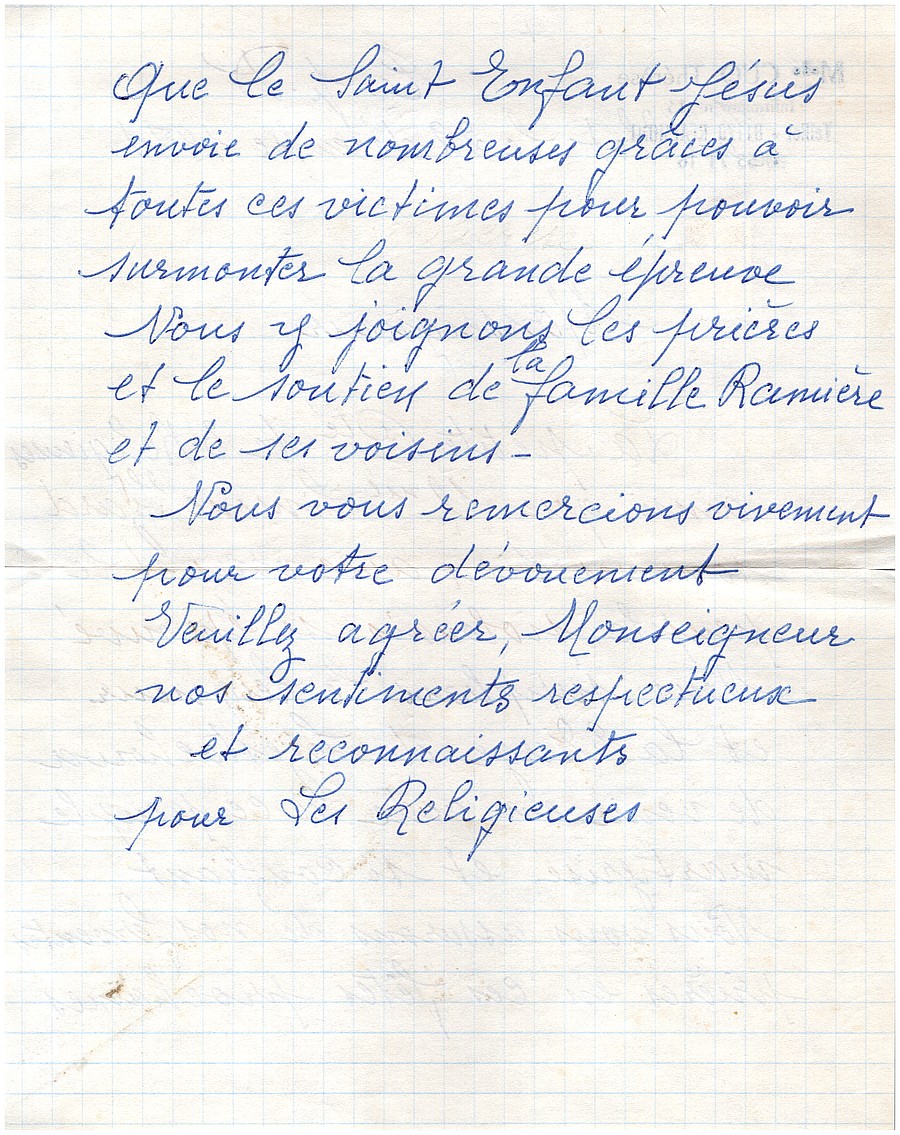 Que le Saint Enfant Jésus
envoie de nombreuses grâces à
toutes ces victimes pour pouvoir
surmonter la grande épreuve
Nous y joignons les prières
et le soutien de la famille Ramière
et de ses voisins -
Nous vous remercions vivement
pour votre dévouement
Veuillez agréer, Monseigneur
nos sentiments respectueux
et reconnaissants
pour Les Religieuses